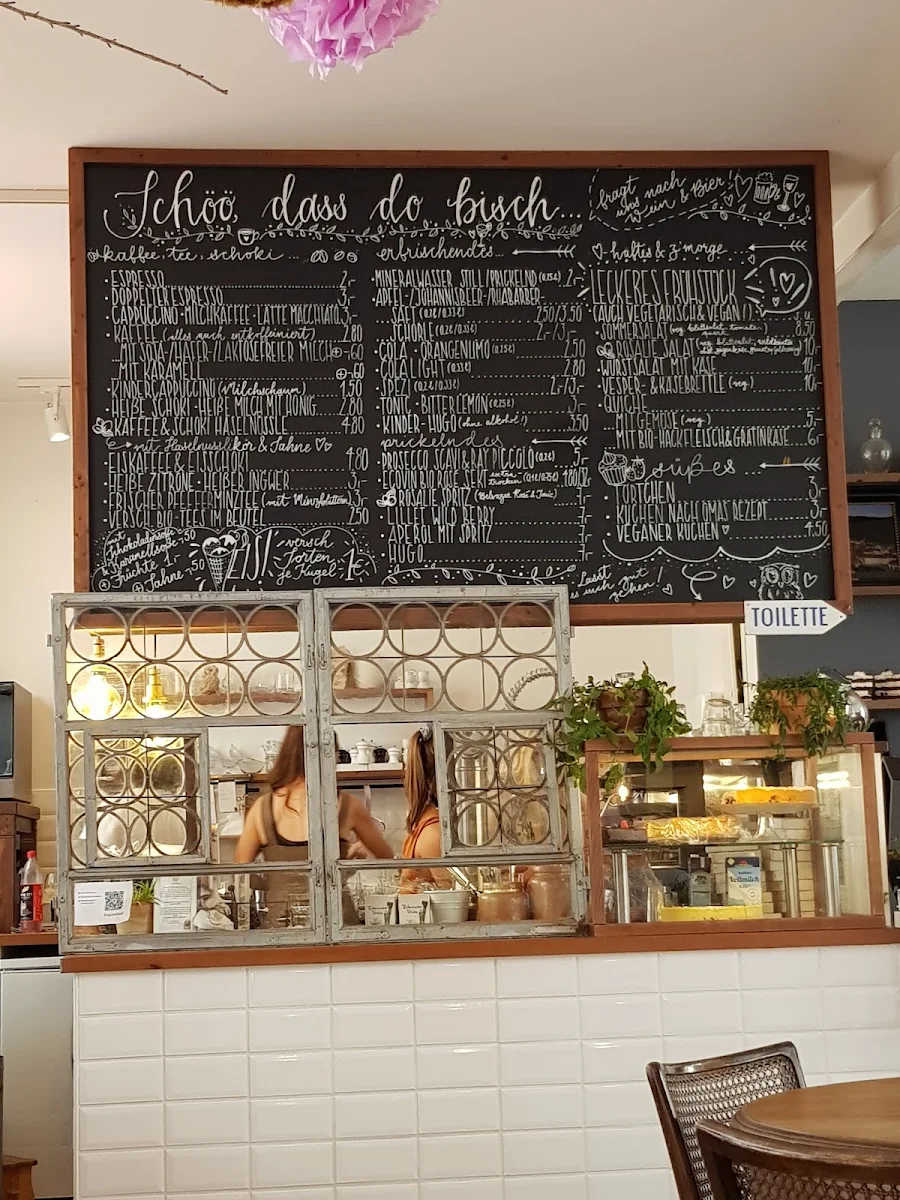 Schöö, dass do bisch...
fragt nach
uns Wein & Bier!
kaffee, tee, schoki...
ESPRESSO 2,-
DOPPELTER ESPRESSO 3,-
CAPPUCCINO·MILCHKAFFEE·LATTE MACCHIATO 3,-
KAFFEE (alles auch entkoffeiniert) 2.80
...MIT SOJA-/HAFER-/LAKTOSEFREIER MILCH +-60
...MIT KARAMELL +-60
KINDERCAPPUCCINO (Milchschaum) 1,50
HEIßE SCHOKI·HEIßE MILCH MIT HONIG 2,80
KAFFEE & SCHOKI HASELNÜSSLE 4.80
mit Haselnusslikör & Sahne
EISKAFFEE & EISSCHOKI 4,80
HEIßE ZITRONE·HEIßER INGWER 3,-
FRISCHER PFEFFERMINZTEE (mit Minzblättern) 3,-
VERSCH. BIO-TEE IM BEUTEL 2,50
mit
Schokoladensoße -50
& Karamellsoße
+ Früchte 1,-
+ Sahne -50
EIS!
versch.
Sorten
je Kugel 1€
erfrischendes...
MINERALWASSER STILL/PRICKELND (0,25l) 2,-
APFEL-/JOHANNISBEER-/RHABARBER-
SAFT (0,2l/0,33l) 2.50/3.50
SCHORLE (0,2l/0,33l) 2,-/3,-
COLA·ORANGENLIMO (0,25l) 2,50
COLA LIGHT (0,33l) 2.80
SPEZI (0,2l/0,33l) 2,-/3,-
TONIC·BITTER LEMON (0,25l) 3,-
KINDER-HUGO (ohne alkohol!) 3,50
prickelndes
PROSECCO SCAVI & RAY PICCOLO (0,2l) 5,-
ECOVIN BIO ROSÉ SEKT extra trocken (0,1l/0,75l)
ROSALIE SPRITZ
LILLET WILD BERRY 7,-
APEROL MIT SPRITZ 7,-
HUGO 7,-
kaltes & z'morge
LECKERES FRÜHSTÜCK
(AUCH VEGETARISCH & VEGAN!)
SOMMERSALAT 8,50
ROSALIE SALAT 10,-
WURSTSALAT MIT KÄSE 10,-
VESPER- & KÄSEBRETTLE (veg.) 10,-
QUICHE
...MIT GEMÜSE (veg.) 5,-
...MIT BIO-HACKFLEISCH & GRATINKÄSE 6,-
süßes...
TÖRTCHEN 3,-
KUCHEN NACH OMAS REZEPT 3,-
VEGANER KUCHEN 4.50
Lasst
es euch gut
gehen!
TOILETTE
Vollmilch